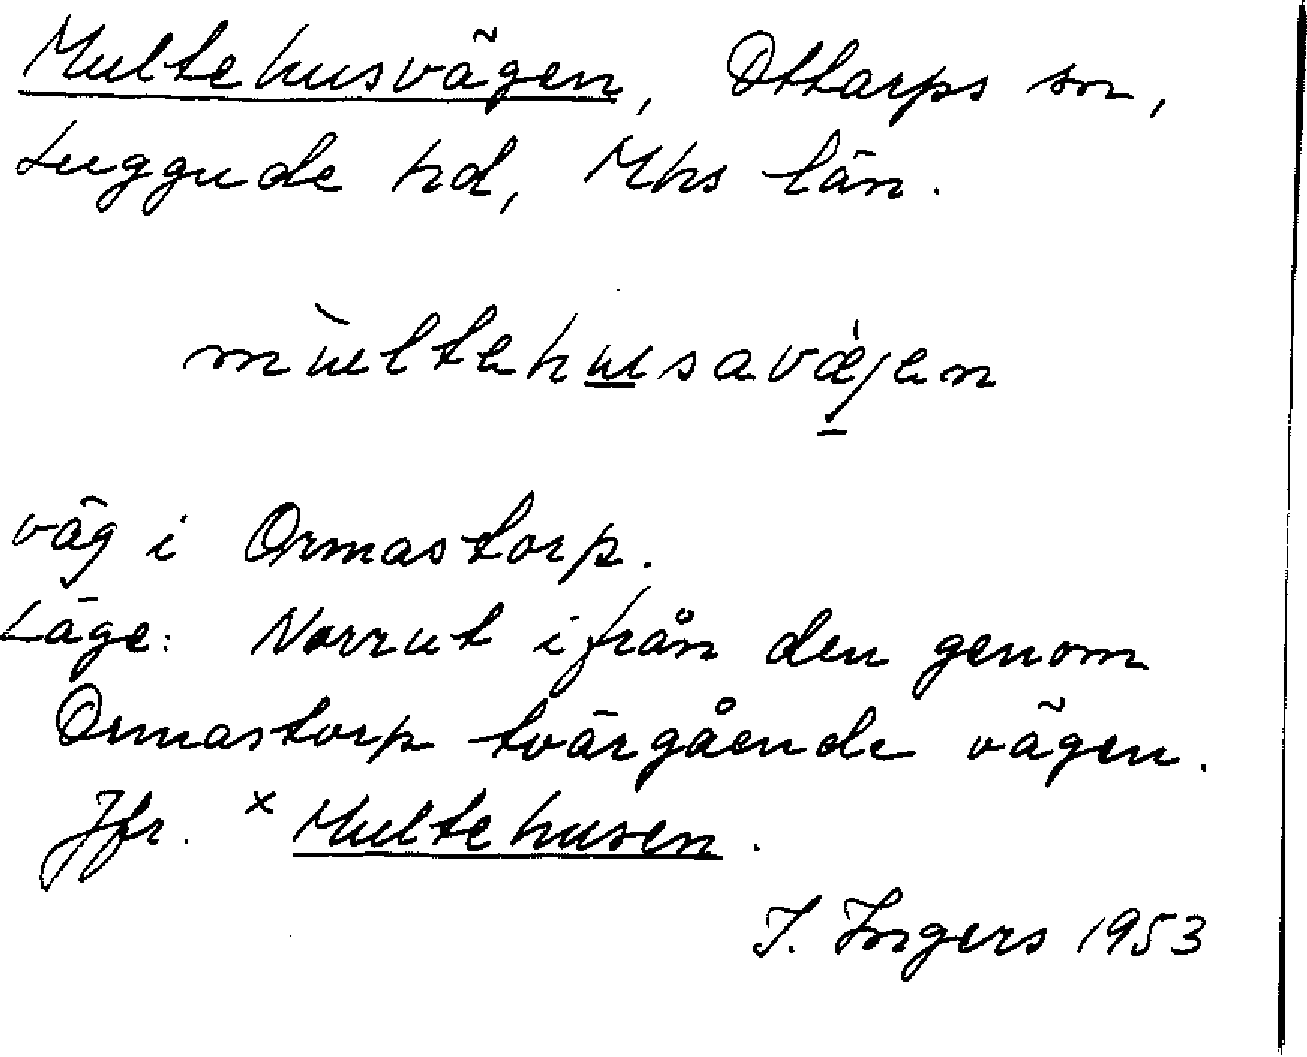 Multehusvägen, Ottarps sn,
Luggude hd, Mhs län.
mùltehusavæ̀jen
väg i Ormastorp.
Läge: Norrut ifrån den genom
Ormastorp tvärgående vägen.
Jfr. x Multehusen.
I. Ingers 1953